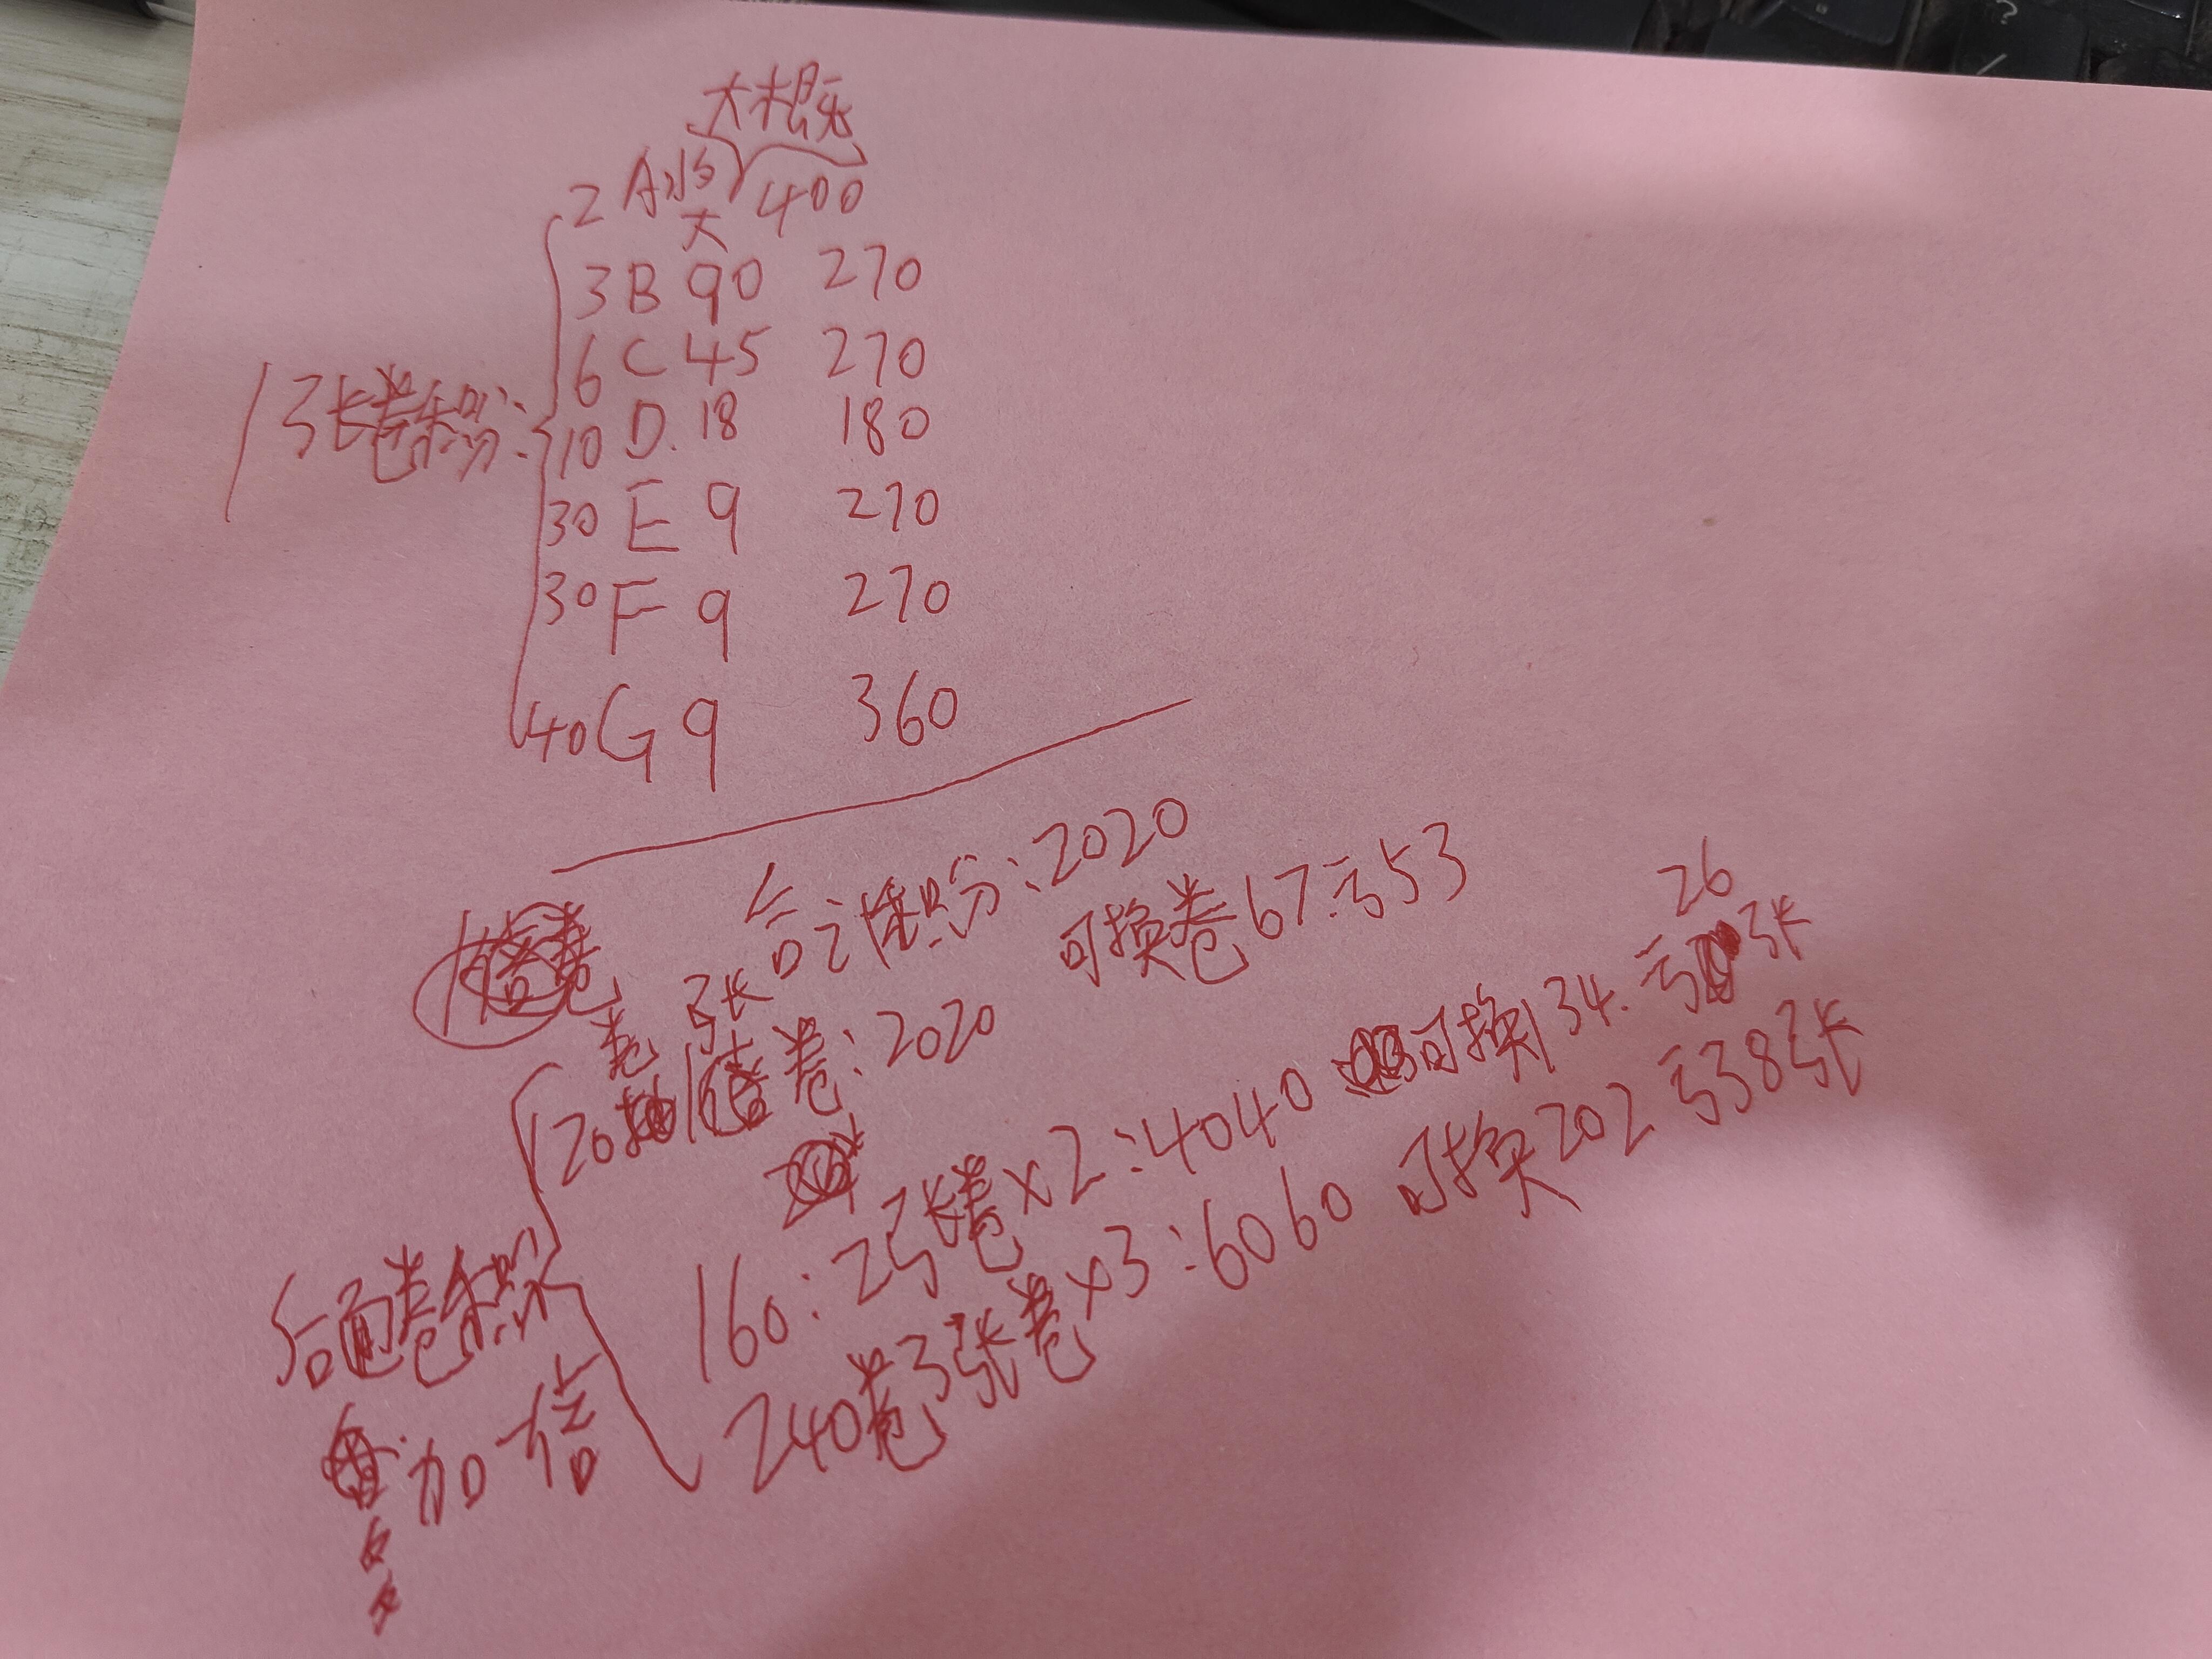 大概
2 A 400
大
3 B 90 270
6 C 45 270
1张卷积分: 10 D. 18 180
30 E 9 270
30 F 9 270
40 G 9 360
合计积分:2020
可换卷67.亏53
卷 张
120 1倍卷:2020
26
160:2张卷x2:4040 可换134.亏 张
240卷3张卷x3:6060 可换202亏38张
后面卷
加倍